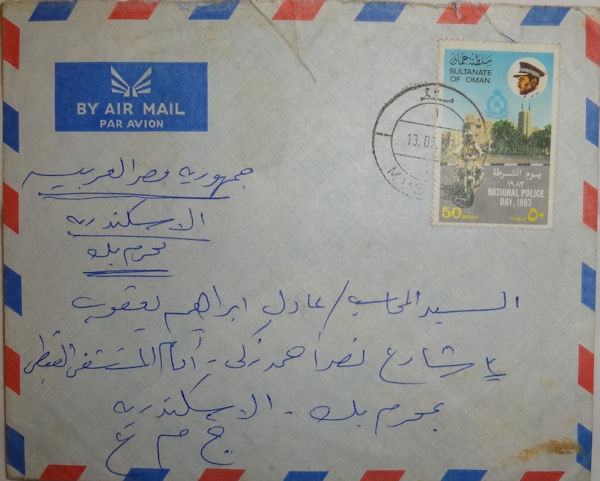 BY AIR MAIL
PAR AVION
سلطنة عمان
SULTANATE
OF OMAN
يوم الشرطة
١٩٨٣
NATIONAL POLICE
DAY, 1983
50 BAISA ٥٠ بيسة
جمهورية مصر العربيه
الاسكندريه
محرم بك
السيد المحاسب / عادل ابراهيم يعقوب
شارع نصر احمد زكى - أمام المستشفى القبطى
بمحرم بك - الاسكندريه
ج م ع